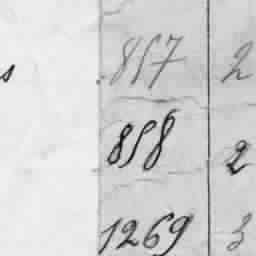 s 857 2
858 2
1269 3